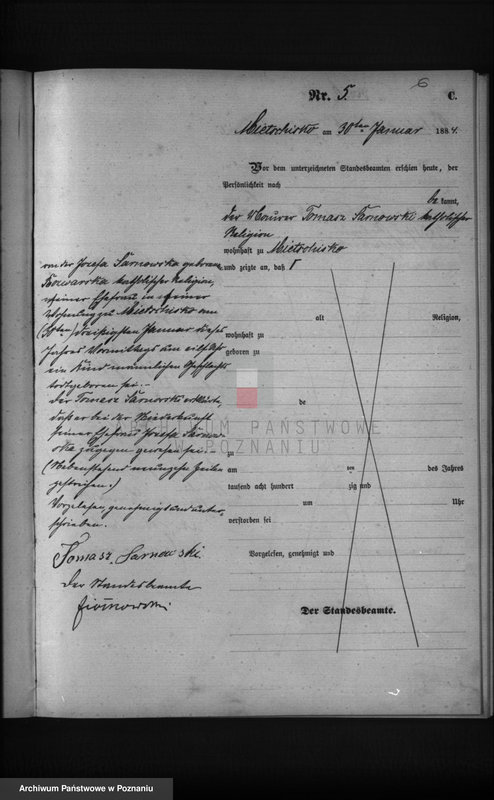 6
Nr. 5.
C.
Mietschisko am 30ten Januar 1884.
Vor dem unterzeichneten Standesbeamten erschien heute, der
Persönlichkeit nach
be kannt,
der Maurer Tomasz Sarnowski katholischer
Religion
wohnhaft zu Mietschisko
und zeigte an, daß Γ
von der Josefa Sarnowska geborene
katholischer Religion,
seiner Ehefrau in seiner
Wohnung zu Mietschisko am
(30ten) dreißigsten Januar dieses
Jahres Vormittags um elf Uhr
ein Kind männlichen Geschlechts
todtgeboren sei.-
Der Tomasz Sarnowski erklärte,
daß er bei der Niederkunft
seiner Ehefrau Josefa Sarnow-
ska zugegen gewesen sei.
(Nebenstehend neunzehn Zeilen
gestrichen.)
Vorgelesen genehmigt und unter-
schrieben.
Tomasz Sarnowski
Der Standesbeamte
alt Religion,
wohnhaft zu
geboren zu
de
zu
am ten des Jahres
tausend acht hundert zig und
um Uhr
verstorben sei
Vorgelesen, genehmigt und
Der Standesbeamte.
ARCHIWUM PAŃSTWOWE
W POZNANIU
Archiwum Państwowe w Poznaniu